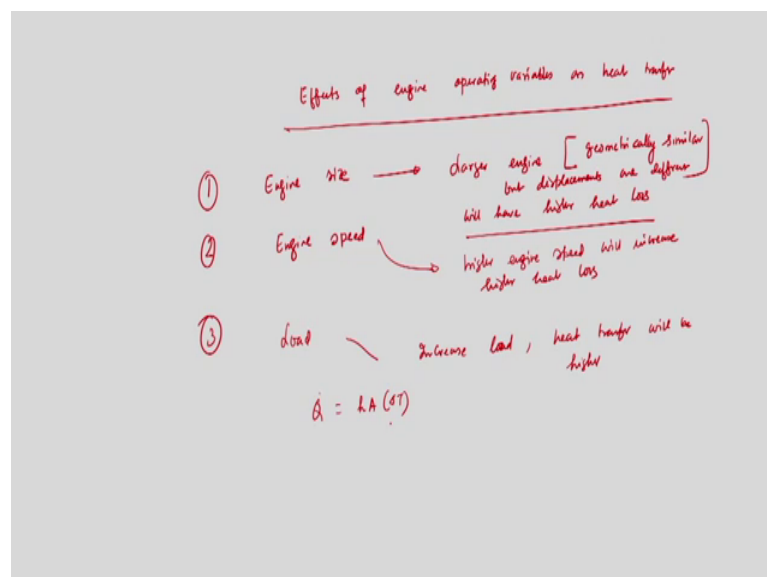 Effects of engine operating variables on heat transfer
① Engine size → Larger engine [geometrically similar
but displacements are different]
will have higher heat loss
② Engine speed → higher engine speed will increase
higher heat loss
③ Load Increase load, heat transfer will be
higher
Q̇ = hA(ΔT)